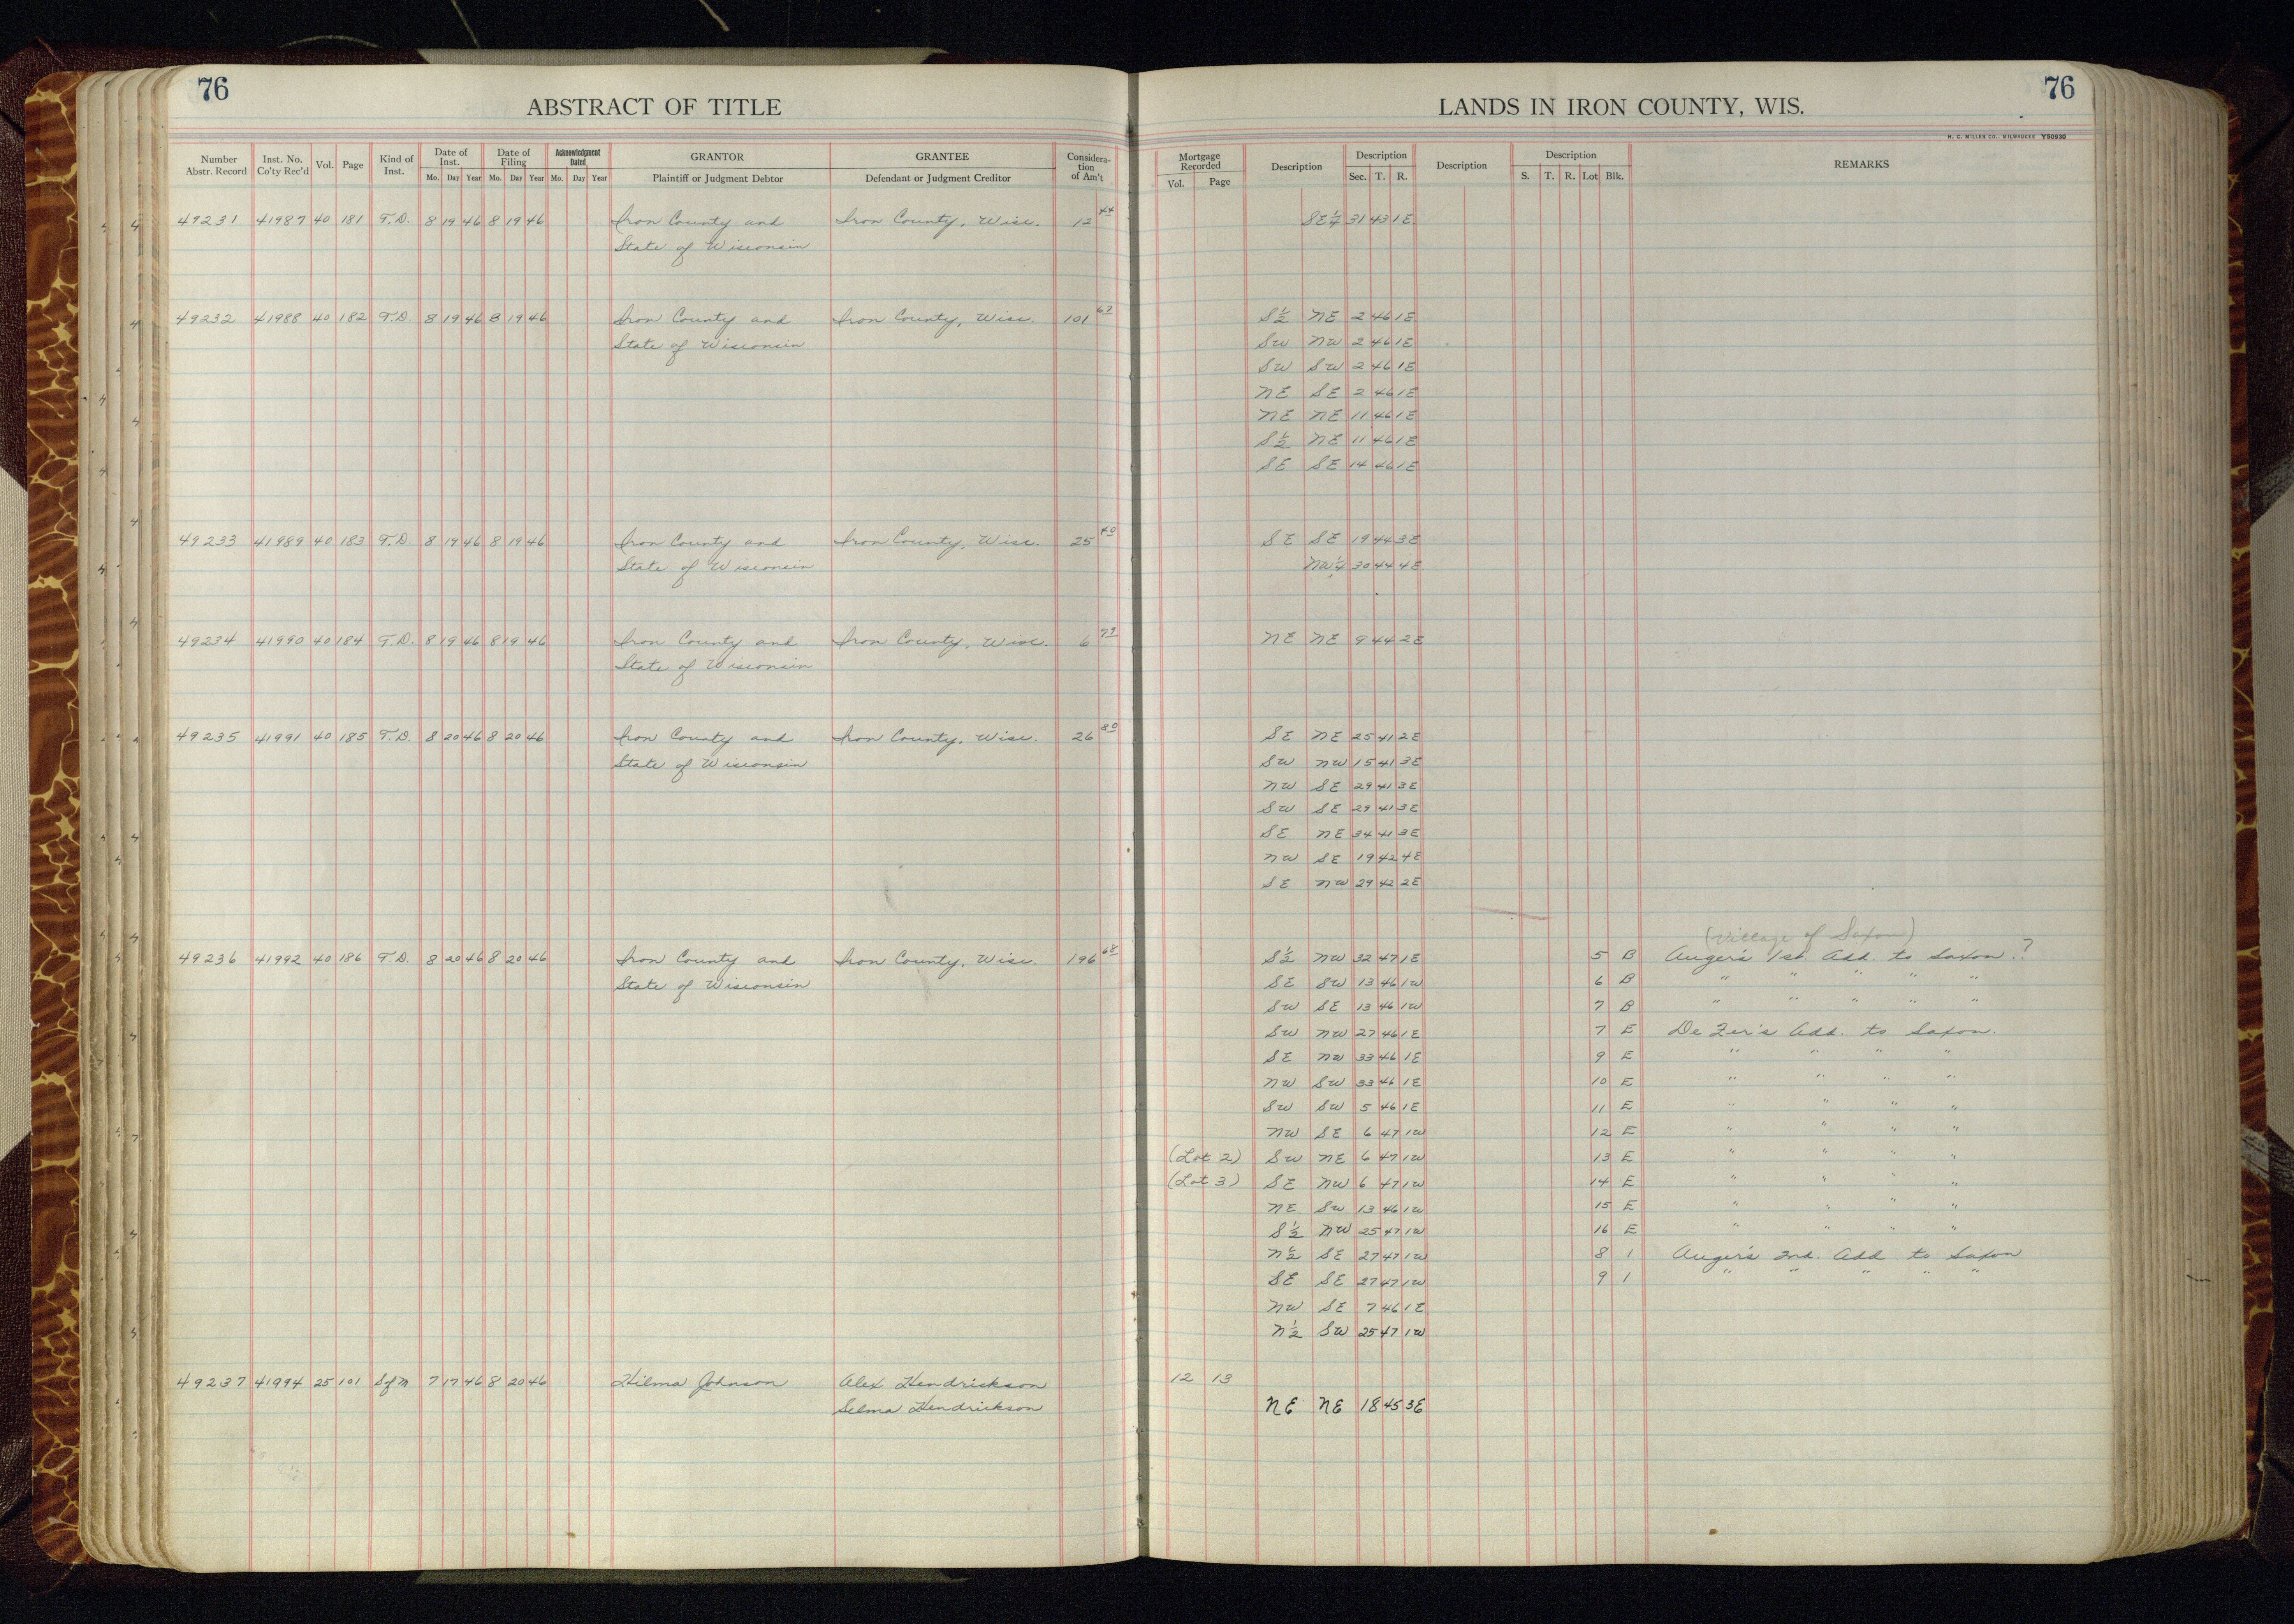 76
ABSTRACT OF TITLE
LANDS IN IRON COUNTY, WIS.
76
H. C. MILLER CO., MILWAUKEE Y50930
Number Abstr. Record | Inst. No. Co'ty Rec'd | Vol. | Page | Kind of Inst. | Date of Inst. Mo. Day Year | Date of Filing Mo. Day Year | Acknowledgment Dated Mo. Day Year | GRANTOR Plaintiff or Judgment Debtor | GRANTEE Defendant or Judgment Creditor | Considera-tion of Am't | Mortgage Recorded Vol. Page | Description | Description Sec. T. R. | Description | Description S. T. R. Lot Blk. | REMARKS
49231 41987 40 181 T.D. 8 19 46 8 19 46 Iron County and Iron County, Wisc. 12 44 SE¼ 31 43 1E
State of Wisconsin
49232 41988 40 182 T.D. 8 19 46 8 19 46 Iron County and Iron County, Wisc. 101 67 S½ NE 2 46 1E
State of Wisconsin SW NW 2 46 1E
SW SW 2 46 1E
NE SE 2 46 1E
NE NE 11 46 1E
S½ NE 11 46 1E
SE SE 14 46 1E
49233 41989 40 183 T.D. 8 19 46 8 19 46 Iron County and Iron County, Wisc. 25 40 SE SE 19 44 3E
State of Wisconsin NW¼ 30 44 4E
49234 41990 40 184 T.D. 8 19 46 8 19 46 Iron County and Iron County, Wisc. 6 79 NE NE 9 44 2E
State of Wisconsin
49235 41991 40 185 T.D. 8 20 46 8 20 46 Iron County and Iron County, Wisc. 26 80 SE NE 25 41 2E
State of Wisconsin SW NW 15 41 3E
NW SE 29 41 3E
SW SE 29 41 3E
SE NE 34 41 3E
NW SE 19 42 4E
SE NW 29 42 2E
(Village of Saxon)
49236 41992 40 186 T.D. 8 20 46 8 20 46 Iron County and Iron County, Wisc. 196 68 S½ NW 32 47 1E 5 B Auger's 1st. Add. to Saxon. ?
State of Wisconsin SE SW 13 46 1W 6 B " " " " "
SW SE 13 46 1W 7 B " " " " "
SW NW 27 46 1E 7 E De Zer's Add. to Saxon.
SE NW 33 46 1E 9 E " " " "
NW SW 33 46 1E 10 E " " " "
SW SW 5 46 1E 11 E " " " "
NW SE 6 47 1W 12 E " " " "
(Lot 2) SW NE 6 47 1W 13 E " " " "
(Lot 3) SE NW 6 47 1W 14 E " " " "
NE SW 13 46 1W 15 E " " " "
S½ NW 25 47 1W 16 E " " " "
N½ SE 27 47 1W 8 1 Auger's 2nd. Add to Saxon
SE SE 27 47 1W 9 1 " " " " "
NW SE 7 46 1E
N½ SW 25 47 1W
49237 41994 25 101 S of M 7 17 46 8 20 46 Hilma Johnson Alex Hendrickson 12 13
Selma Hendrickson NE NE 18 45 3E